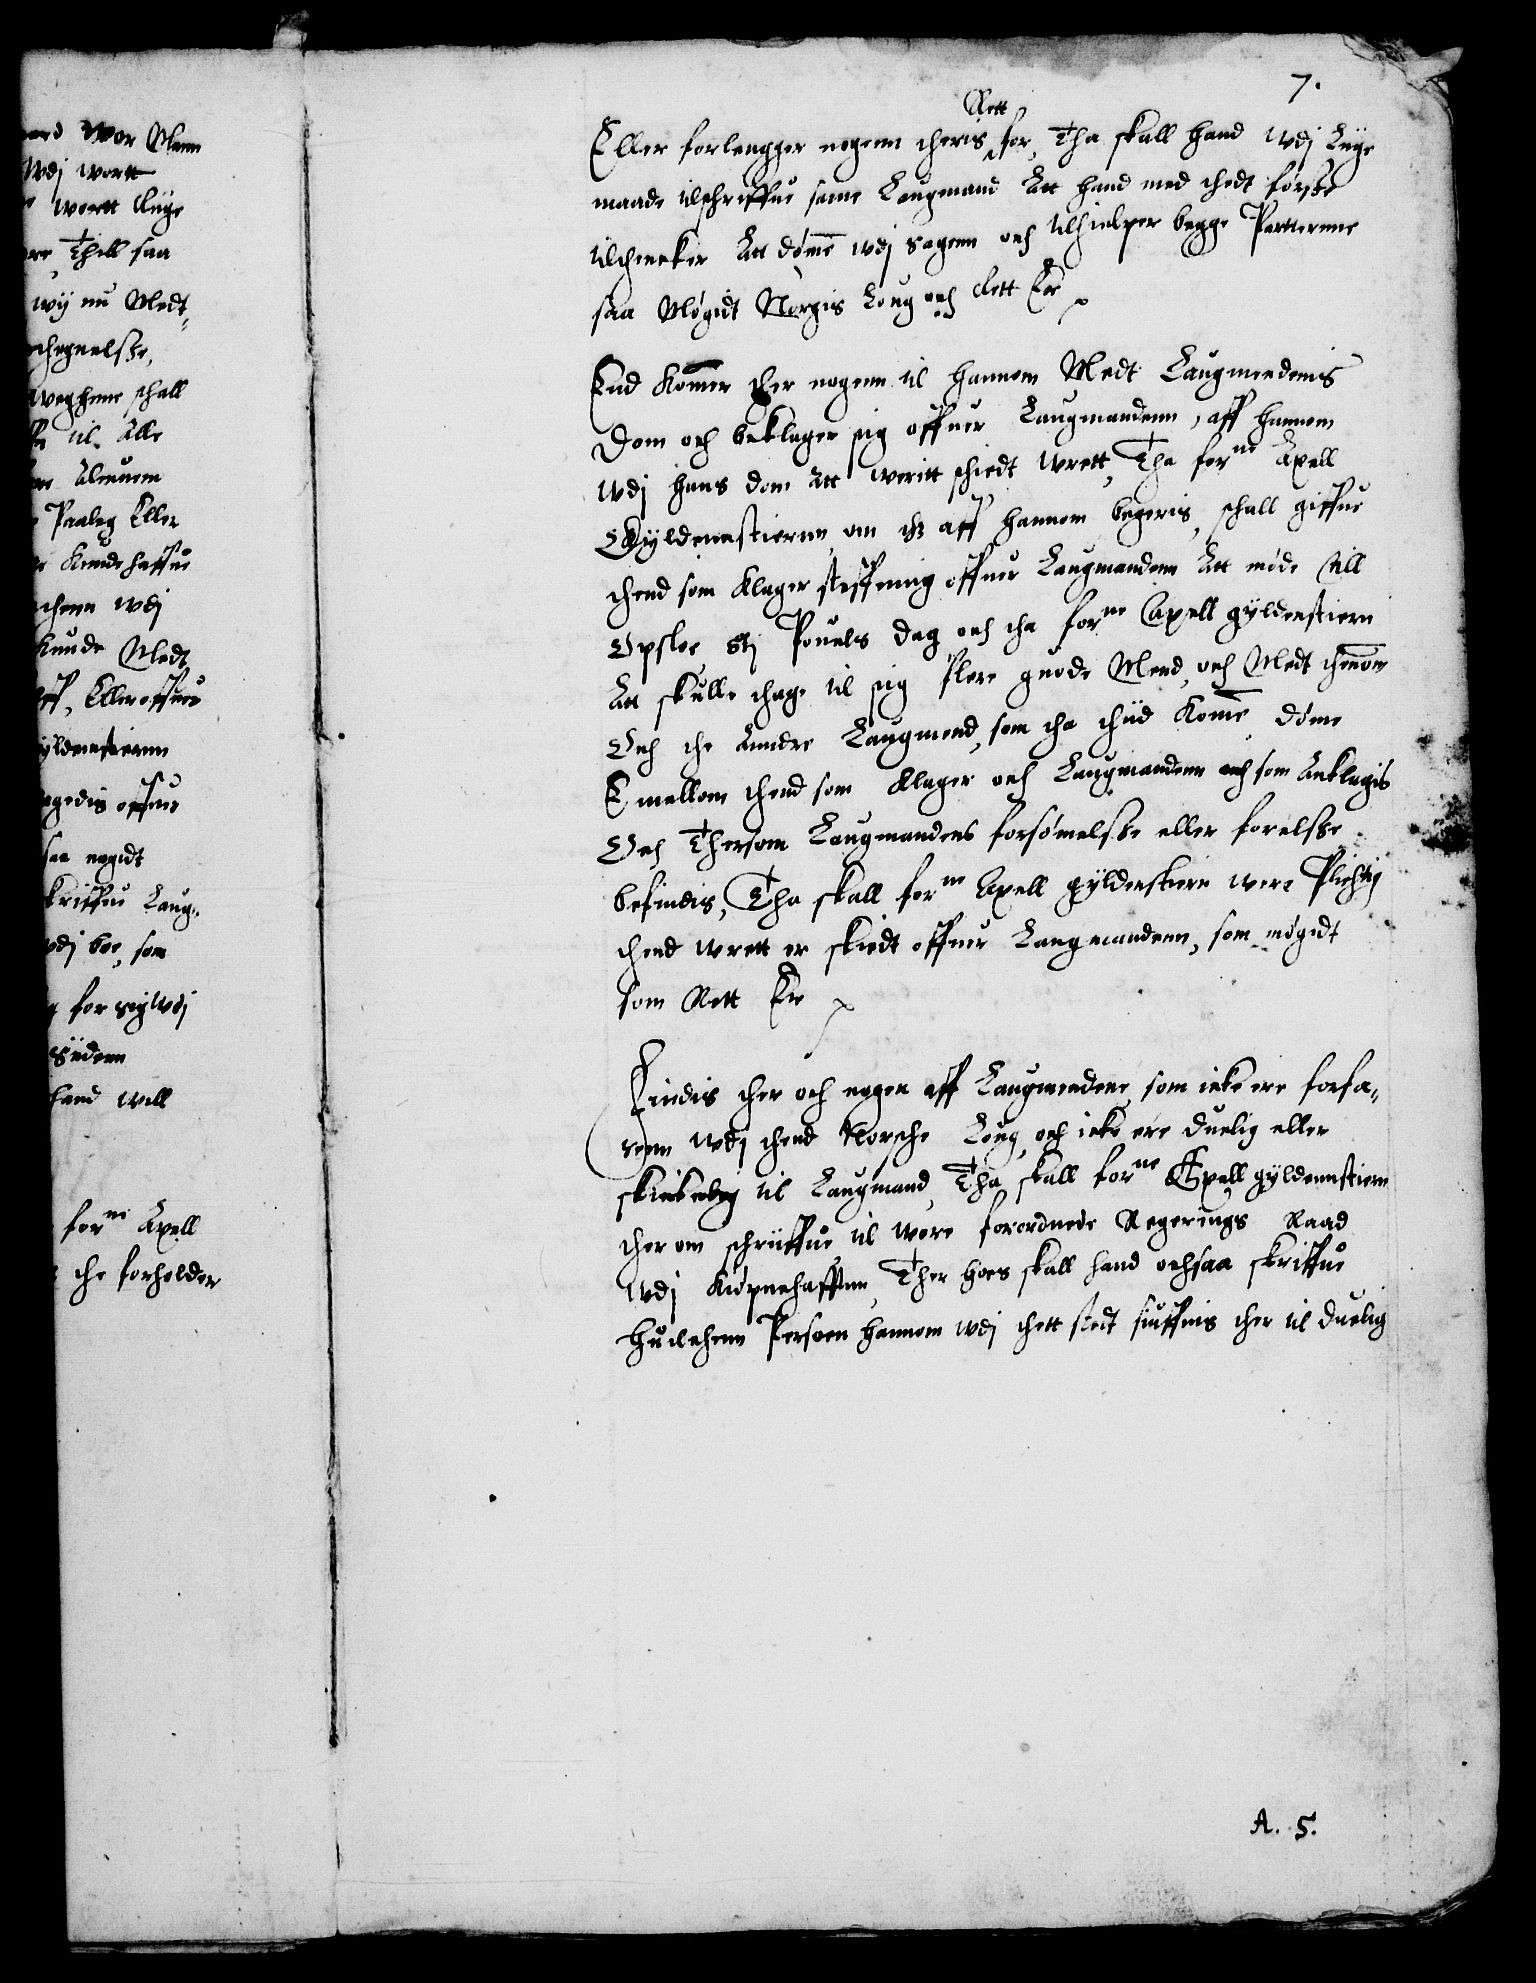 7.
Rett
Eller forlengger nogenn theris for, Tha skall hand wdj Liige
maade tilschriffue same Laugmand Att hand med thedt første
tilthencker Att dømē wdj sagenn och tilhielper begge Partterenne
saa Møgidt Norgis Loug och Rett Er
End Kom̄er Ther nogenn til hannom Medt Laugmendenis
Dom och beklager sig offuer Laugmandenn, aff hannom
wdj hans dom Att weritt schiedt wrett, Tha forne Axell
Gyldennstiernn, om thz aff hannom begeris, schall giffue
thend som Klager steffning offuer Laugmandenn Att møde till
Opsloe Stj Pouels dag och tha forne Axell gyldenstiern
Att skulle thage til sig flere guode Mend, och Medt thennom
Och the Anndre Laugmend, som tha thiid Komē døme
Emellom thend som Klager och Laugmandenn och som Anklagis
Och Thersom Laugmandens forsømelsze eller forelsze
befindis, Tha skall forne Axell gyldenstiern were Plichtig
thend wrett er skiedt offuer Laugmandenn, som møgidt
som Rett Er
Findis ther och nogen aff Laugmendene, som icke ere forfa,
renn wdj thend Norsche Loug, och icke ere duelig eller
skickelig til Laugmand, Tha skall forne Axell gyldennstiern
ther om schriffue til wore forordnede Regerings Raad
wdj Kiøpnehaffnn, Ther hoes skall hand ochsaa skriffue
huilchenn Persoen hannom wdj thett stedt siuffnis ther til duelig
A. 5.
wor Menn
wdj wortt
wortt Riige
Thill saa
wij nu Medt
thegnelsze,
weghenne schall
til Alle
Almuen
Paaleg Eller
Kunde haffue
wdj
Kunde Medt
Eller offuer
gyldenstiernn
offuer
saa nogidt
skriffue Laug
wdj boe, som
for sig wdj
Siidenn
hand will
forne Axell
the forholder